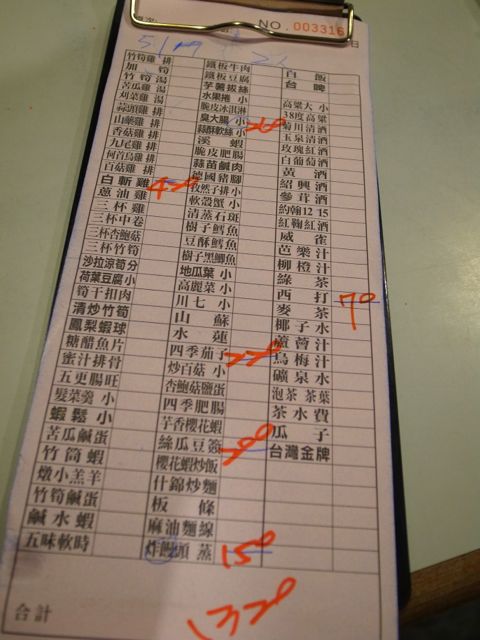 NO. 003316
竹筍雞 排
加 筍
竹 筍 湯
瓜 雞 湯
刈菜雞 湯
蒜頭雞 排
山藥雞 排
香菇雞 排
九尾雞 排
何首烏雞 排
百菇雞 排
白 斬 雞 420
蔥 油 雞
三 杯 雞
三杯中卷
三杯杏鮑菇
三杯竹筍
沙拉涼筍分
荷葉豆腐小
筍干扣肉
清炒竹筍
鳳梨蝦球
糖醋魚片
蜜汁排骨
五更腸旺
髮菜羹 小
蝦 鬆 小
苦瓜鹹蛋
竹 筒 蝦
燉小羔羊
竹筍鹹蛋
鹹 水 蝦
五味軟時
鐵板牛肉
鐵板豆腐
芋薯拔絲
水果捲 小
脆皮冰淇淋
臭大腸 小 260
蒜酥軟絲小
溪 蝦
脆皮肥腸
蒜苗鹹肉
德國豬腳
孜然子排小
軟殼蟹 小
清蒸石斑
樹子鱈魚
豆酥鱈魚
樹子黑鯧魚
地瓜葉 小
高麗菜 小
川 七 小
山 蘇
水 蓮
四季茄子 220
炒百菇 小
杏鮑菇鹽蛋
四季肥腸
芋香櫻花蝦
絲瓜豆簽 200
櫻花蝦炒飯
什錦炒麵
板 條
麻油麵線
炸饅頭 蒸 150
白 飯
台 啤
高粱大 小
38度高粱
菊川清酒
玉泉清酒
玫瑰紅酒
白葡萄酒
黃 酒
紹興酒
參茸酒
約翰12 15
紅鞠紅酒
威 雀
芭樂汁
柳橙汁
綠 茶
西 打 70
麥 茶
椰子水
蘆薈汁
烏梅汁
礦泉水
泡茶 茶葉
茶水費
瓜 子
台灣金牌
合計 1320